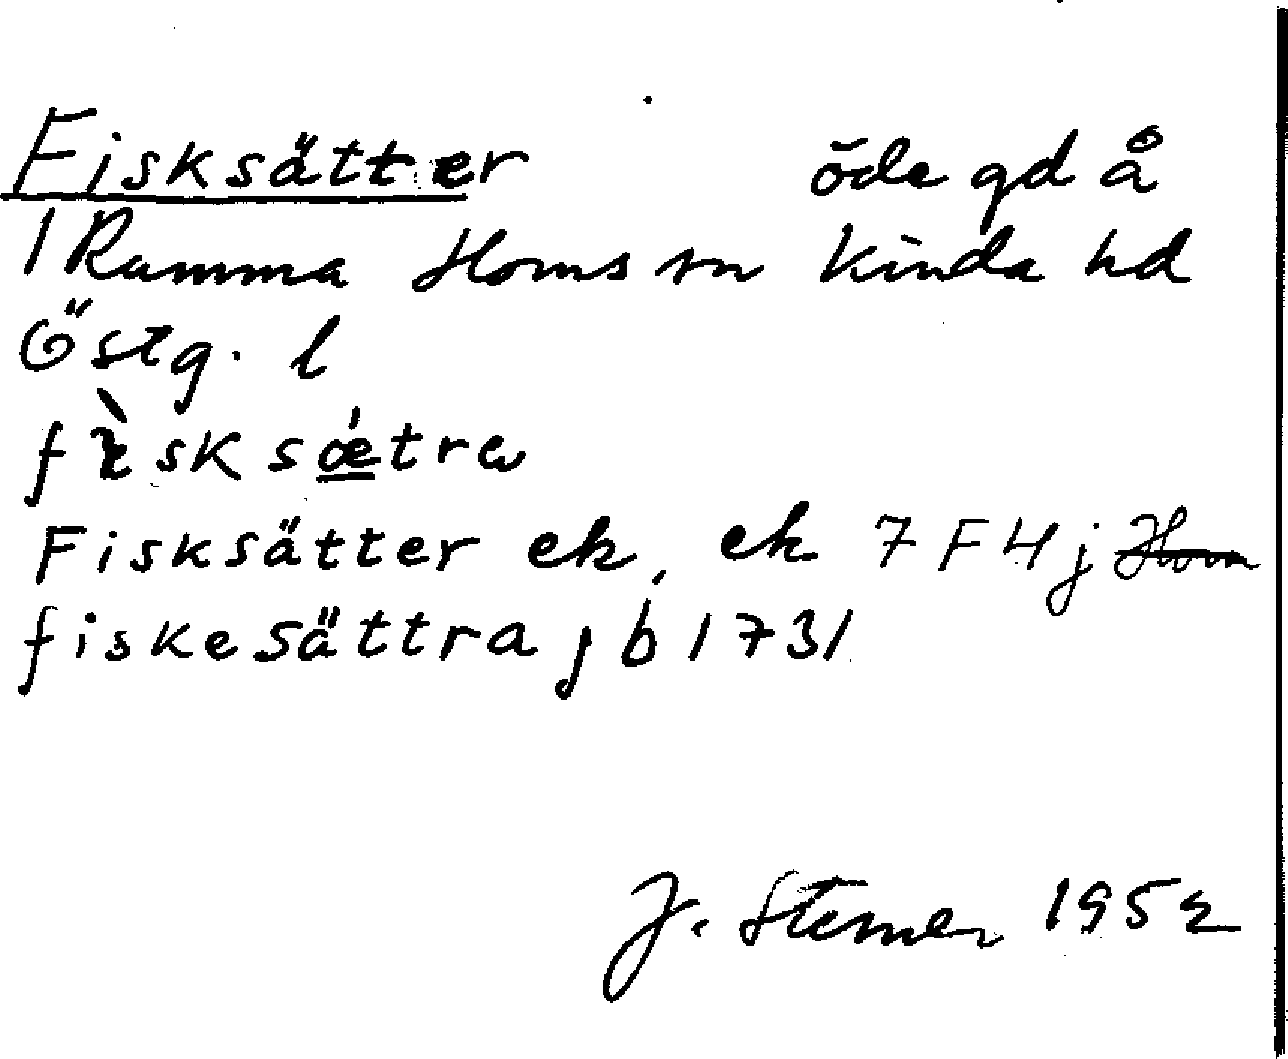 Fisksätter öde gd å
1 Ramma Homs sn Kinda hd
Östg. l
fìsksǽtra
Fisksätter ek, ek 7 F 4 j
fiskesättra jb 1731
J. Stemer 1952